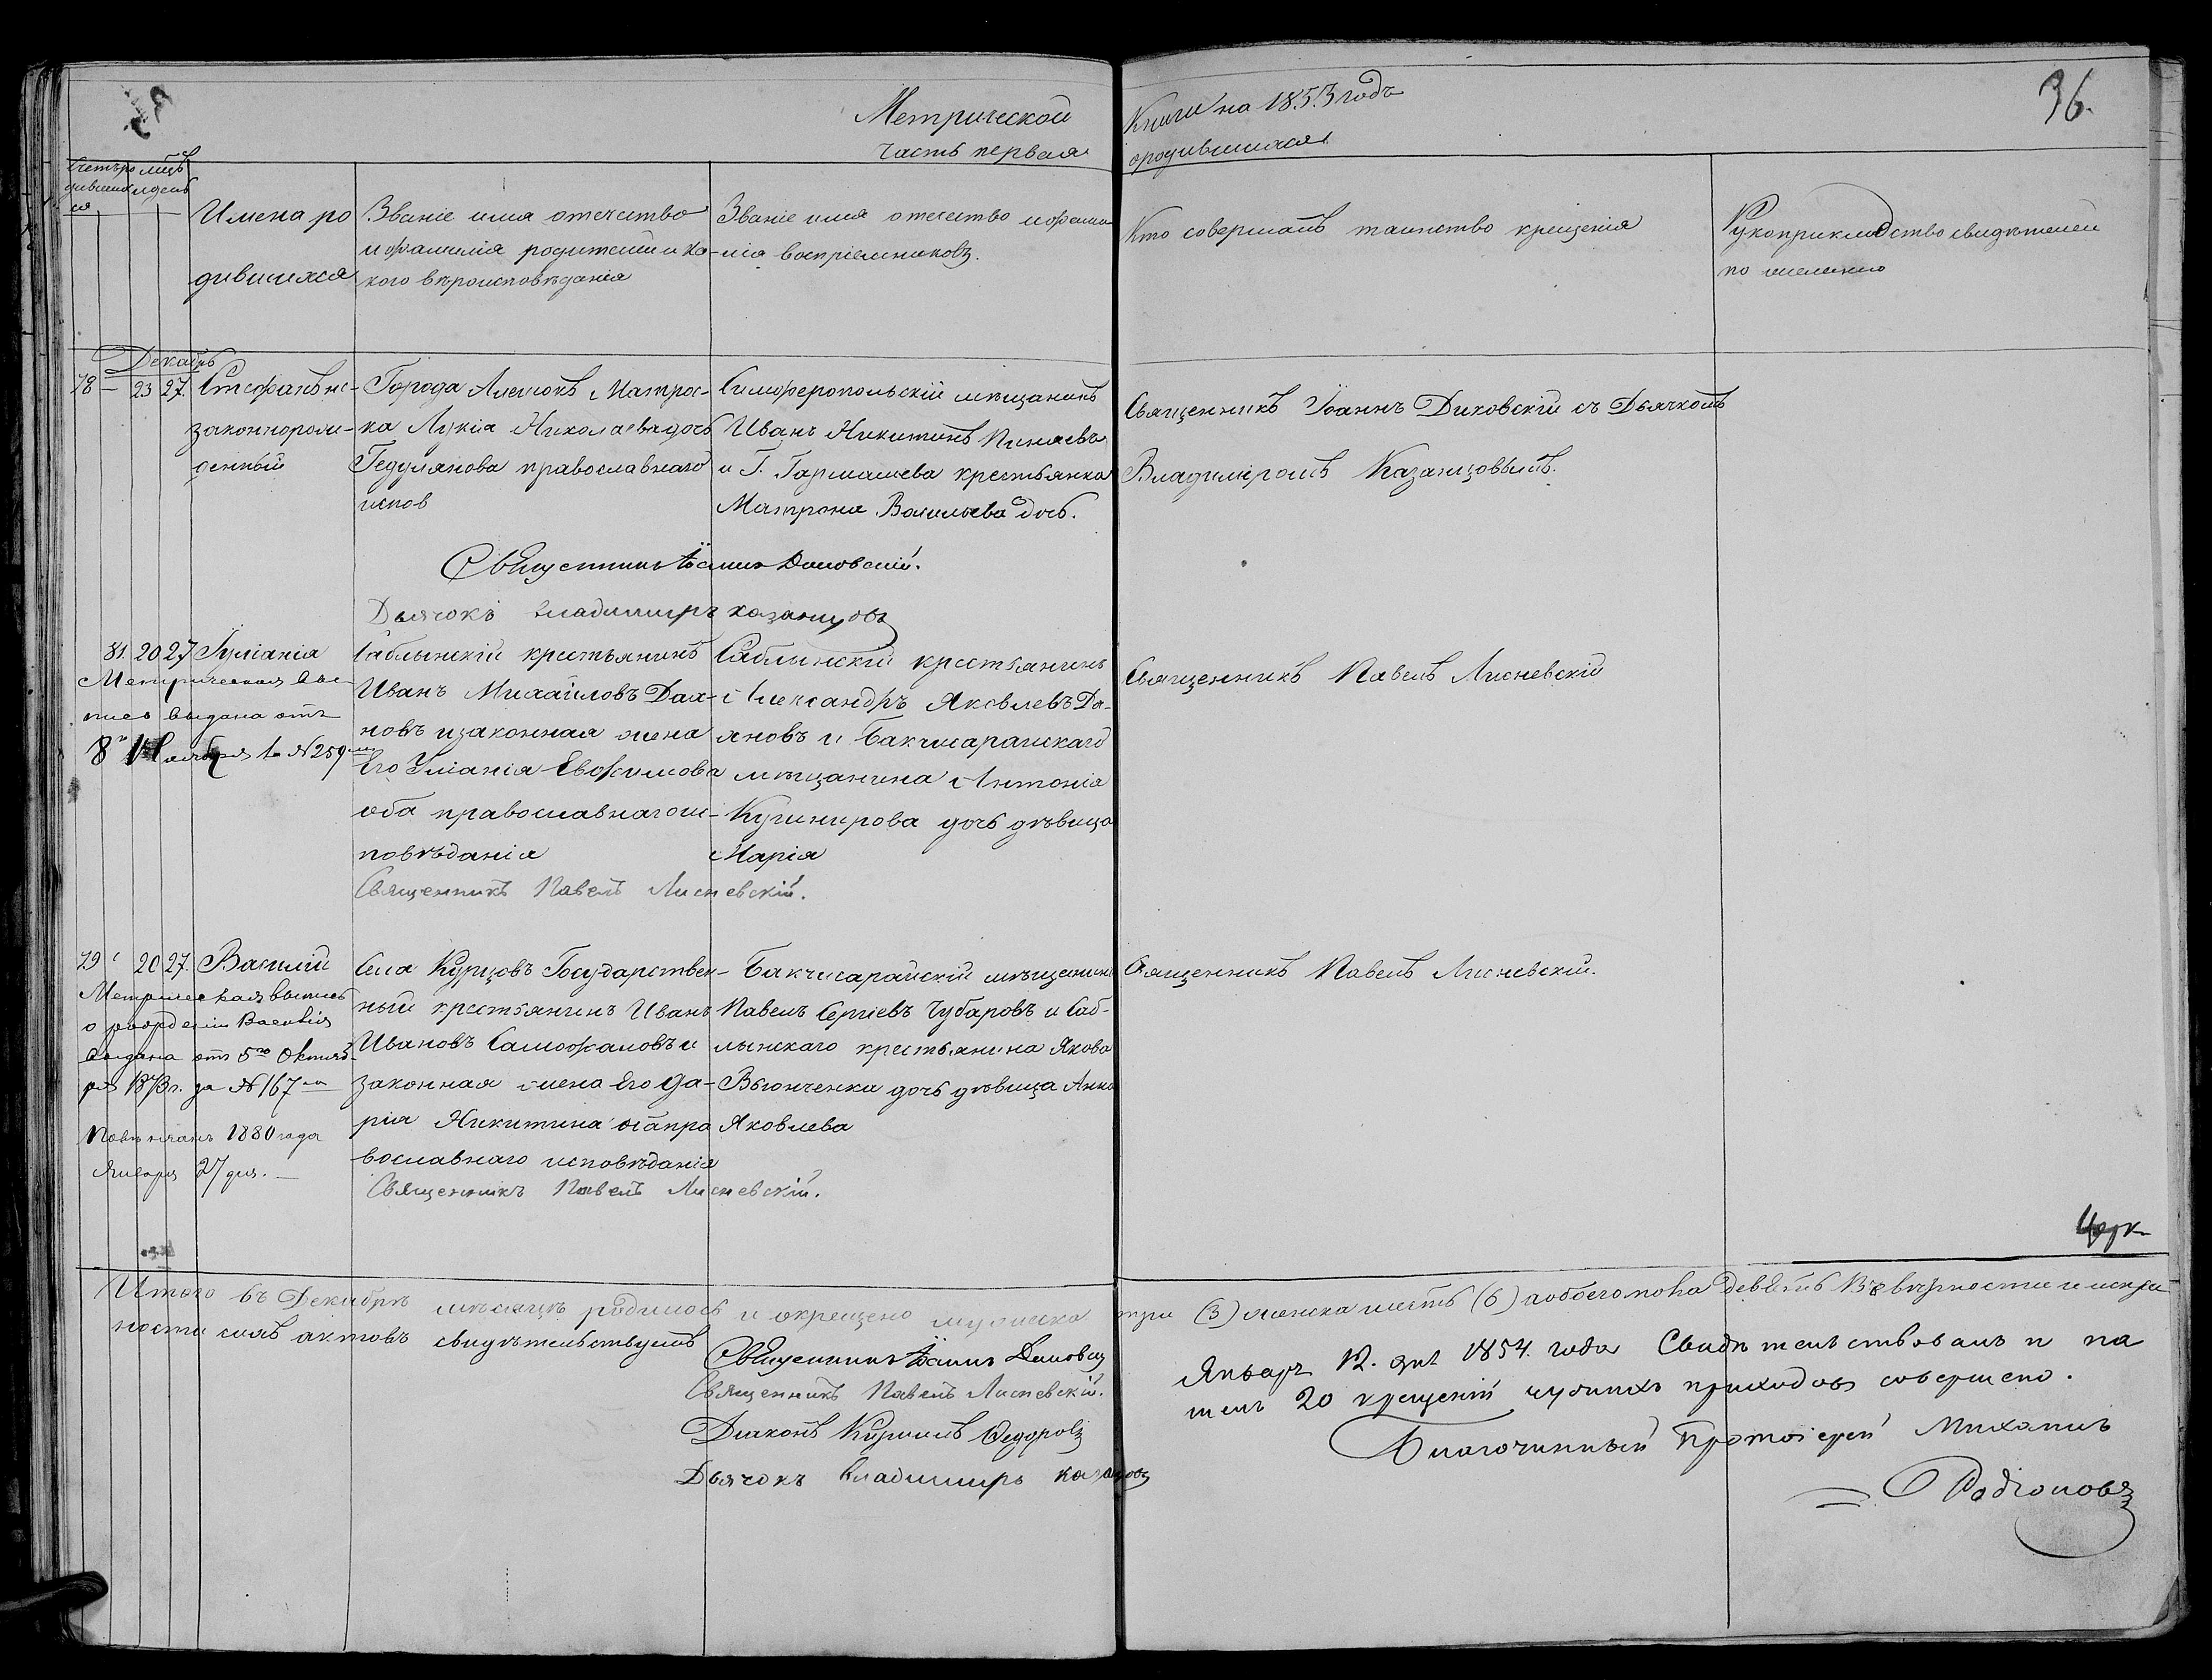 36.
Метрической Книги на 1853 годъ
часть первая о родившихся
Счетъ ро
дивших
ся
Имена ро
дившихся
Званіе имя отечество
и фамилія родителей и ка-
кого вѣроисповѣданія
Званіе имя отечество и фами-
лія воспріемниковъ.
Кто совершалъ таинство крещенія
Рукоприкладство свидѣтелей
по желанію
Декабрь
78 — 23 27. Стефанъ не-
законнорож-
денный
Города Алешокъ Матрос-
ка Лукія Николаева дочь
Гедулянова православнаго
испов
Симферопольскій мѣщанинъ
Иванъ Никитинъ Пиняевъ
и Г. Гармашева крестьянка
Матрона Васильева дочь.
Священникъ Іоаннъ Диковскій съ Дьячкомъ
Владиміромъ Казанцовымъ.
Священникъ Іоаннъ Диковскій.
Дьячокъ Владимиръ Казанцовъ
81. 20 27 Іуліанія
Метрическая вы-
пись выдана отъ
8 Ноября № 259
Саблынскій крестьянинъ
Иванъ Михаиловъ Дая-
новъ и законная жена
Его Уліанія Евфимова
оба православнаго ис-
повѣданія
Саблинскій крестьянинъ
Александръ Яковлевъ Да-
яновъ и Бакчисарайскаго
мѣщанина Антонія
Кушнирова дочь дѣвица
Марія
Священникъ Павелъ Лисневскій
Священникъ Павелъ Лисневскій.
79 20 27. Василій
Метрическая выпись
о рожденіи Василія
выдана отъ 5го Октяб-
ря 1873 г. за № 167
Повѣнчанъ 1880 года
Января 27 дня. —
Села Курцовъ Государствен-
ный крестьянинъ Иванъ
Ивановъ Самофаловъ и
законная жена Его Да-
рія Никитина оба пра
вославнаго исповѣданія
Бакчисарайскій мѣщанинъ
Павелъ Сергіевъ Чубаровъ и Саб-
лынскаго крестьянина Якова
Вьюнченки дочь дѣвица Анна
Яковлева
Священникъ Павелъ Лисневскій.
Священникъ Павелъ Лисневскій.
Итого въ Декабрѣ мѣсяцѣ родилось и окрещено мужеска три (3) женска шесть (6) а обоего пола девять Въ вѣрности и искре
ности сихъ актовъ свидѣтельствуемъ
Священникъ Іоаннъ Диковскій
Священникъ Павелъ Лисневскій.
Діаконъ Кириллъ Ѳедоровъ
Дьячокъ Владимиръ Казанцовъ
Январь 12. дня 1854. года Свидѣтельствовалъ и
20 крещеній чужихъ приходовъ совершено.
Благочинный Протоіерей Михаилъ
Родіоновъ